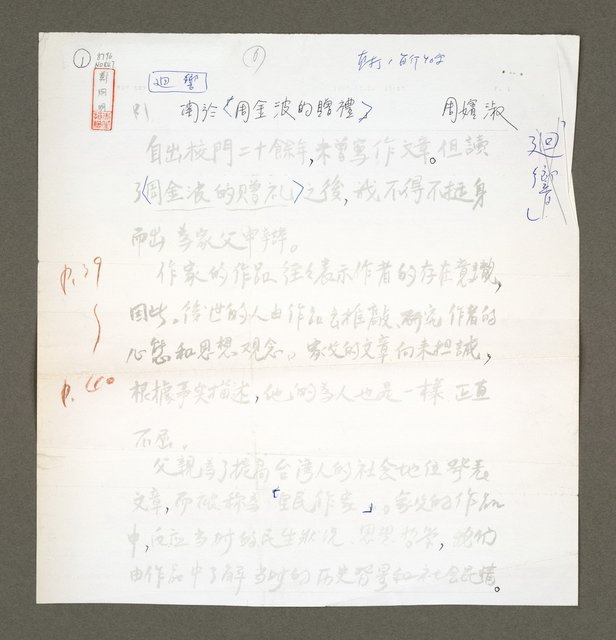 ① ⑥ 直打，百行40字
迴響
關於《周金波的贈禮》 周嬪淑
「迴響」
自出校門二十餘年，未曾寫作文章。但讀
了《周金波的贈礼》之後，我不得不挺身
而出為家父申辯。
作家的作品往々表示作者的存在意識，
P.39
因此，後世的人由作品去推敲、研究作者的
心態和思想、观念。家父的文章向来坦誠，
P.40
根據事实描述，他的為人也是一樣正直
不屈。
父親為了提高台湾人的社会地位發表
文章，而被称為「皇民作家」。家父的作品
中，反应当时的民生狀況、思想哲学，我们
由作品中了解当时的历史背景和社会民情。